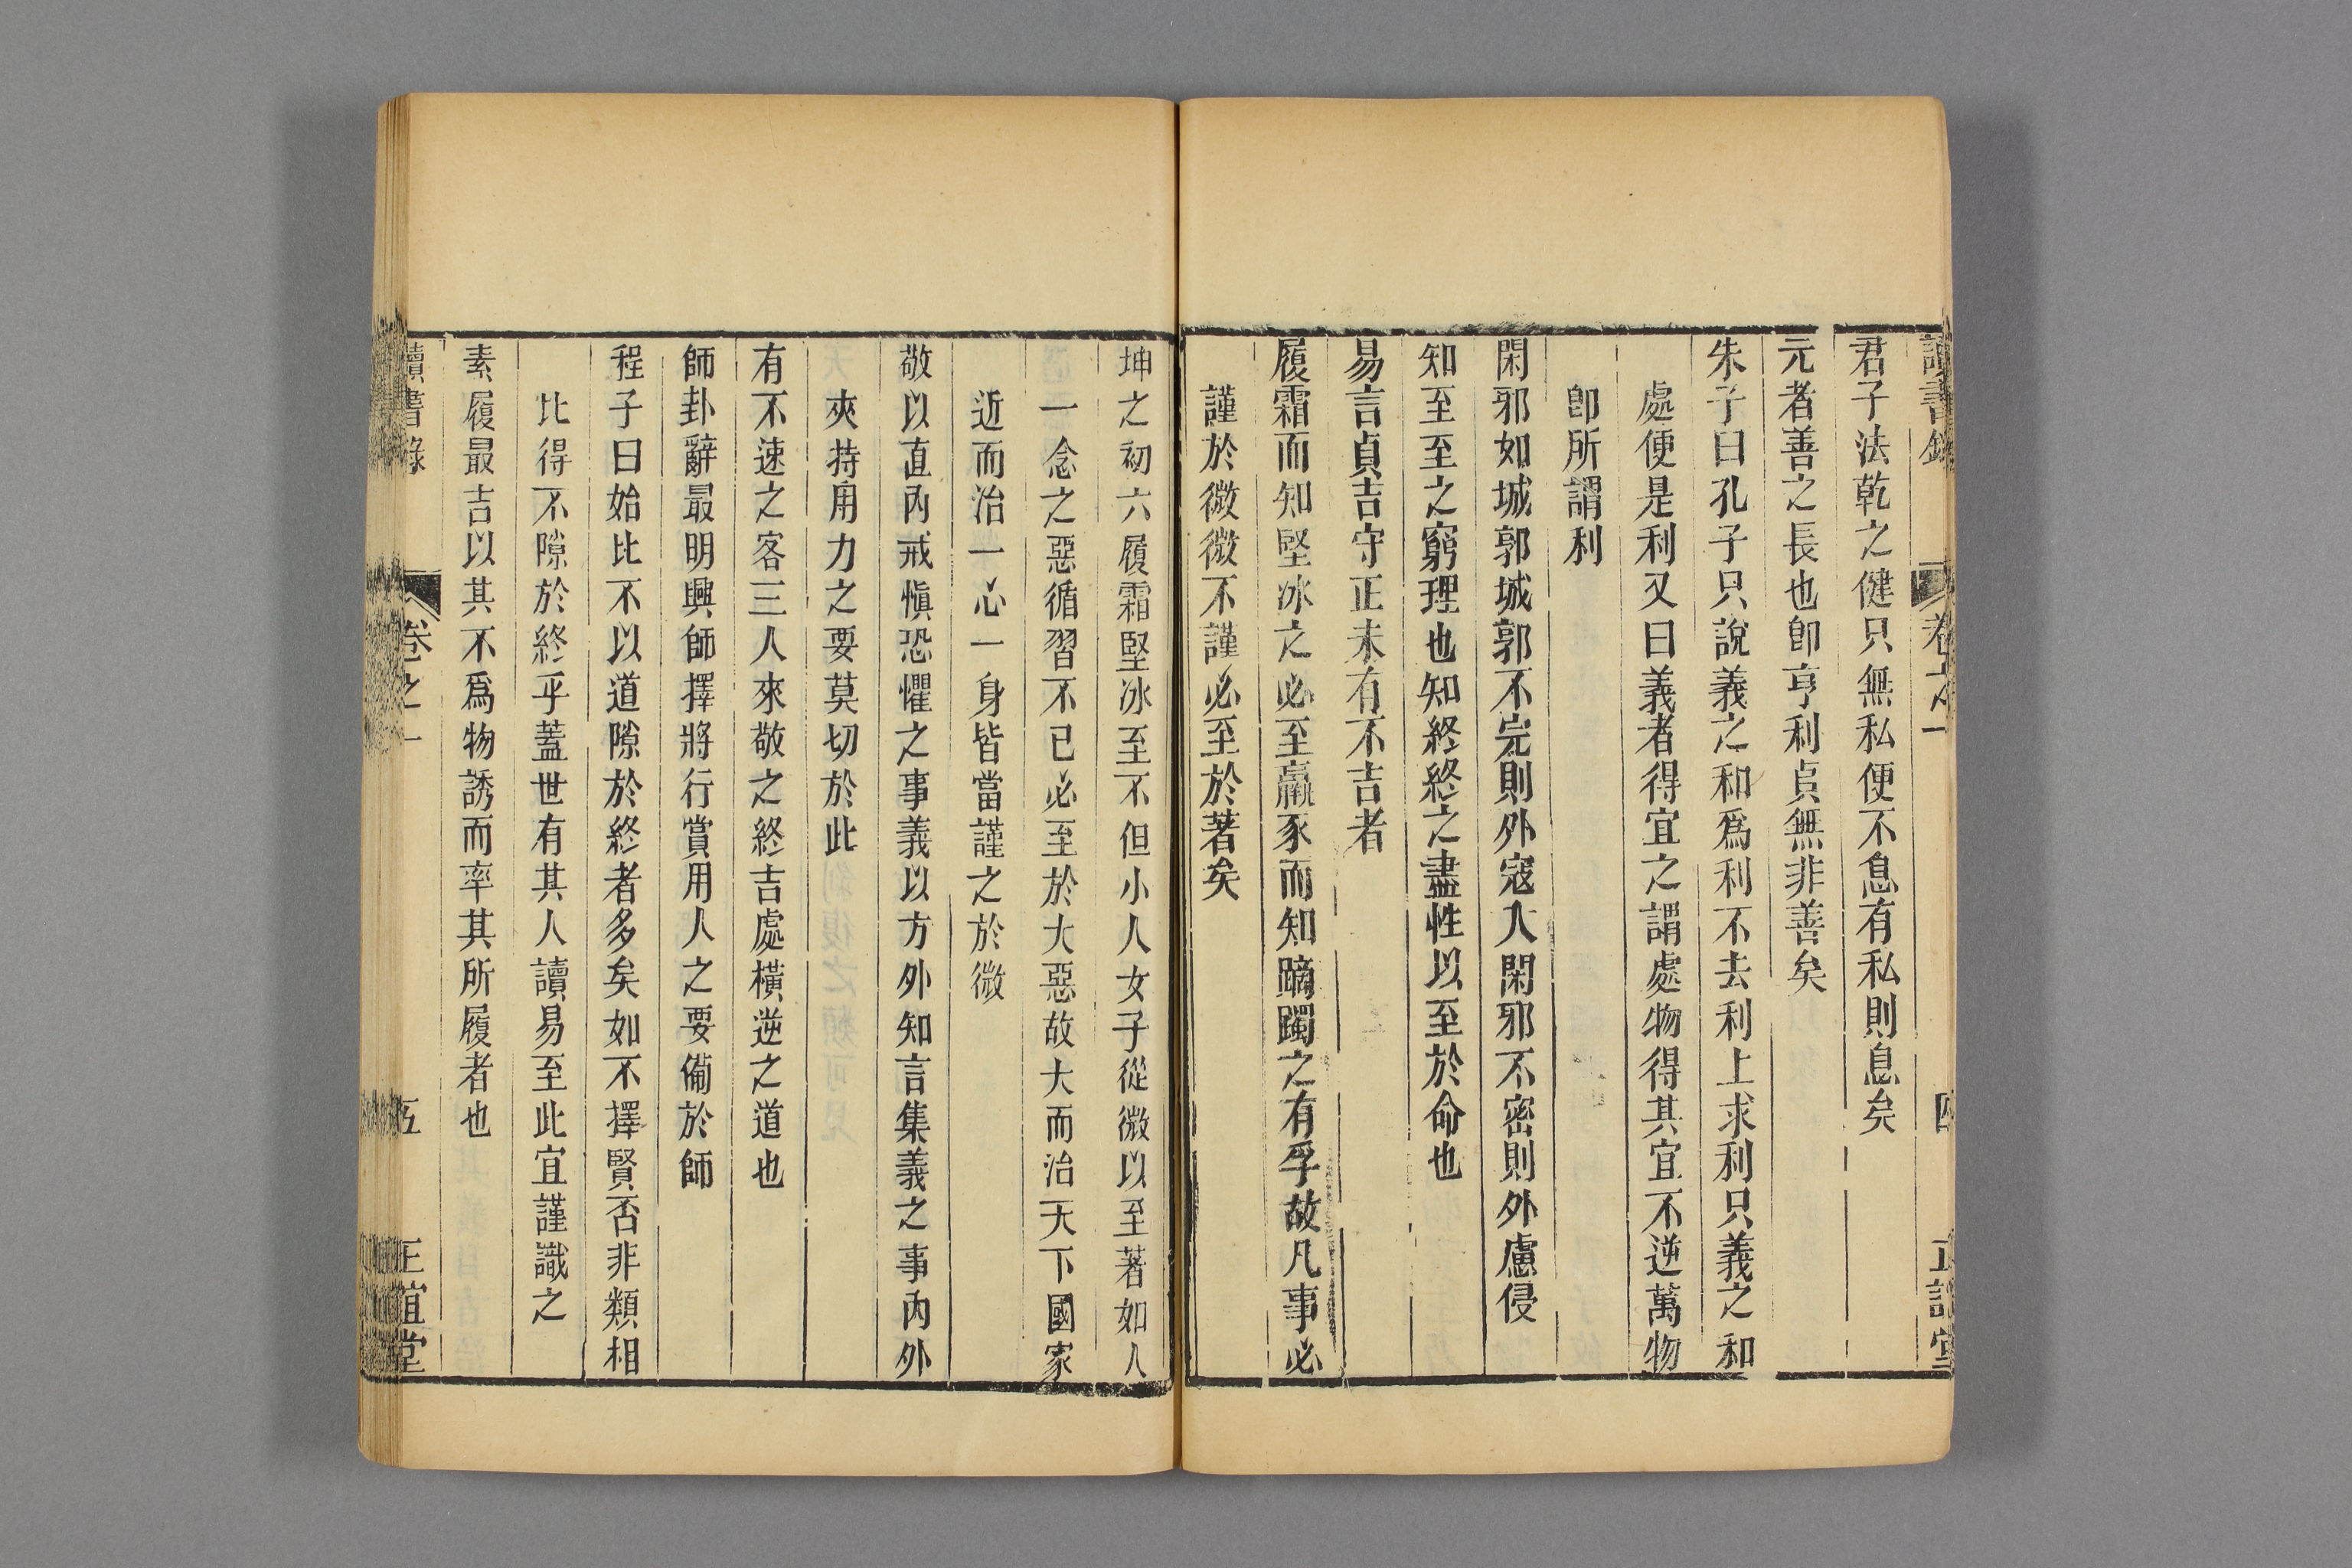 讀書錄 卷之一 四 正誼堂
君子法乾之健只無私便不息有私則息矣
元者善之長也卽亨利貞無非善矣
朱子曰孔子只說義之和爲利不去利上求利只義之和
處便是利又曰義者得宜之謂處物得其宜不逆萬物
卽所謂利
閑邪如城郭城郭不完則外寇入閑邪不密則外慮侵
知至至之窮理也知終終之盡性以至於命也
易言貞吉守正未有不吉者
履霜而知堅冰之必至羸豕而知蹢躅之有孚故凡事必
謹於微微不謹必至於著矣
坤之初六履霜堅冰至不但小人女子從微以至著如人
一念之惡循習不已必至於大惡故大而治天下國家
近而治一心一身皆當謹之於微
敬以直內戒愼恐懼之事義以方外知言集義之事內外
夾持用力之要莫切於此
有不速之客三人來敬之終吉處橫逆之道也
師卦辭最明興師擇將行賞用人之要備於師
程子曰始比不以道隙於終者多矣如不擇賢否非類相
比得不隙於終乎蓋世有其人讀易至此宜謹識之
素履最吉以其不爲物誘而率其所履者也
讀書錄 卷之一 五 正誼堂